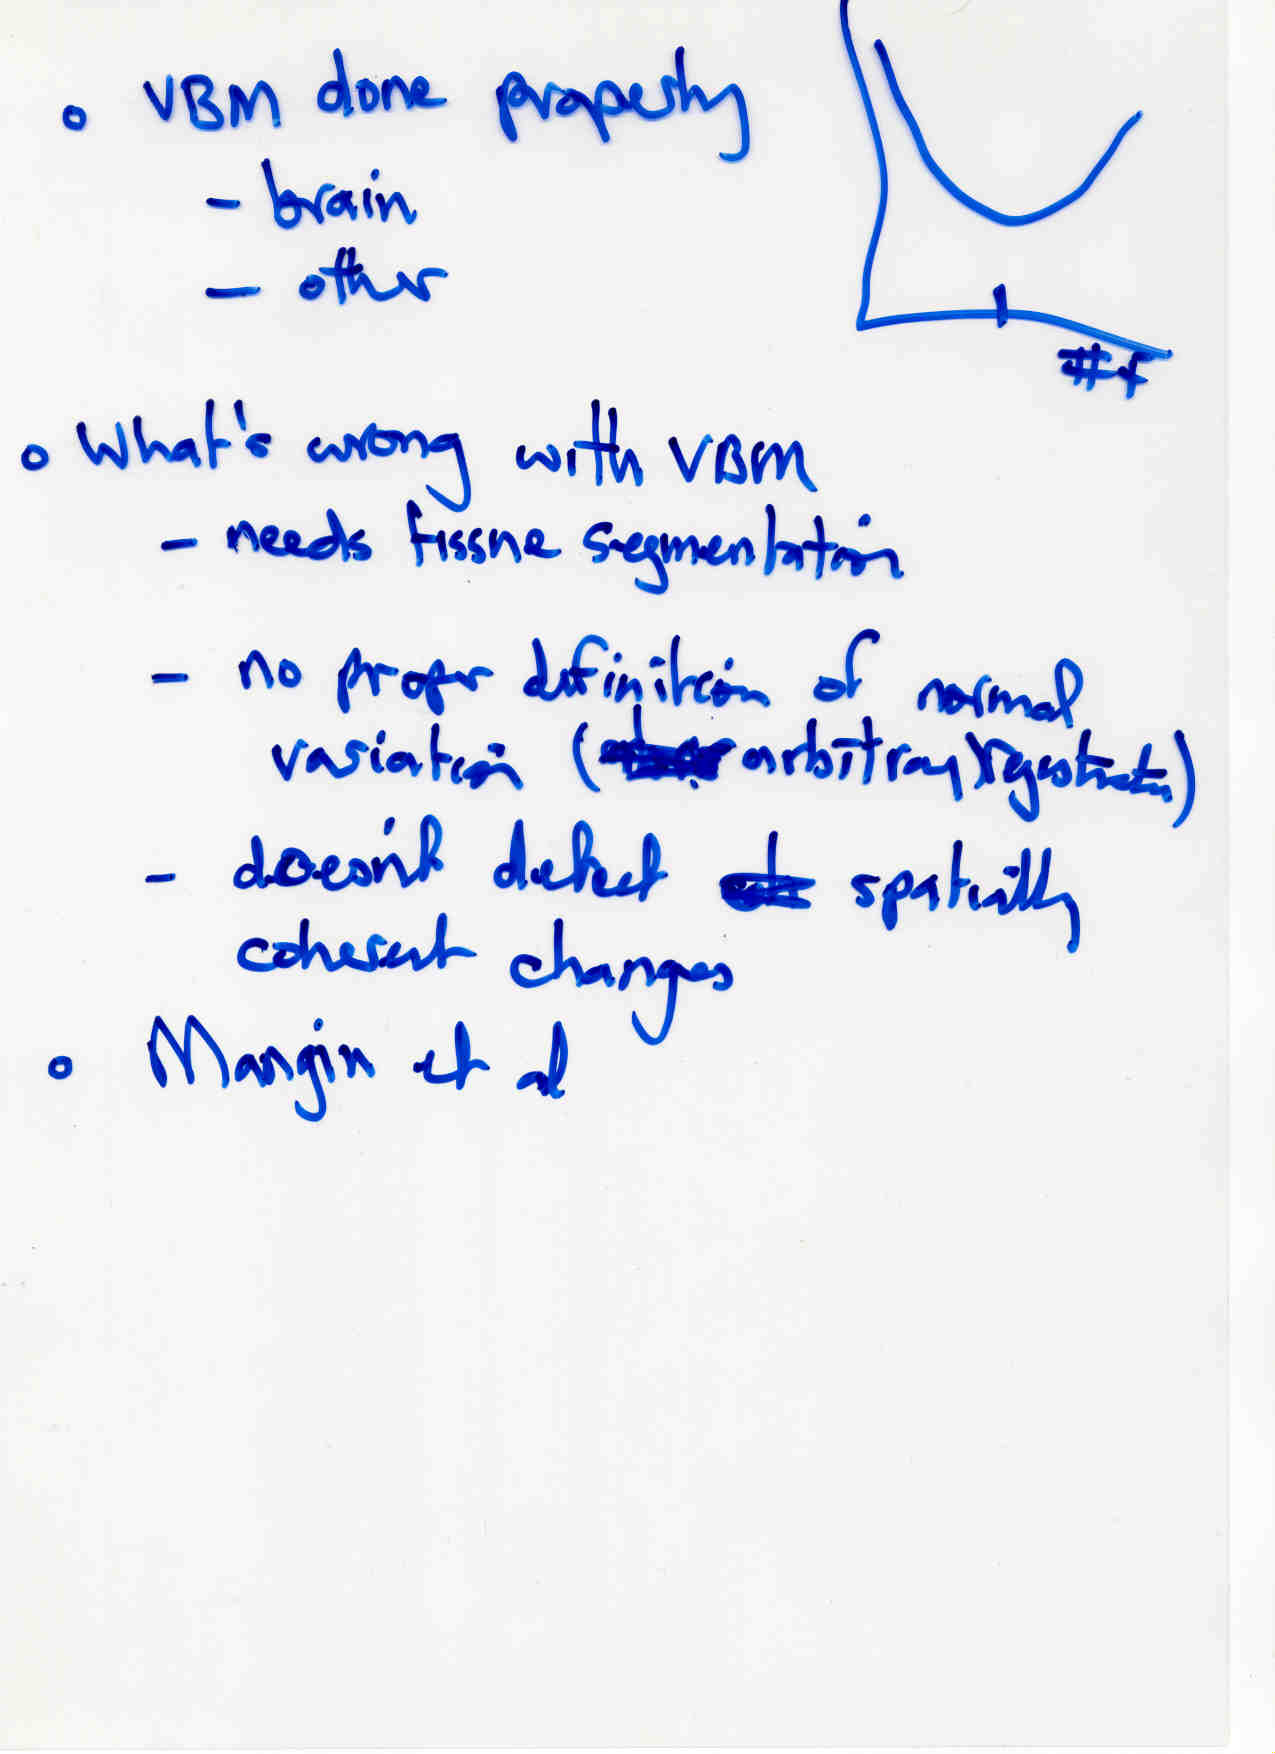 o VBM done properly
- brain
- other
#f
o What's wrong with VBM
- needs tissue segmentation
- no proper definition of normal
variation (arbitrary registration)
- doesn't detect spatially
coherent changes
o Mangin et al